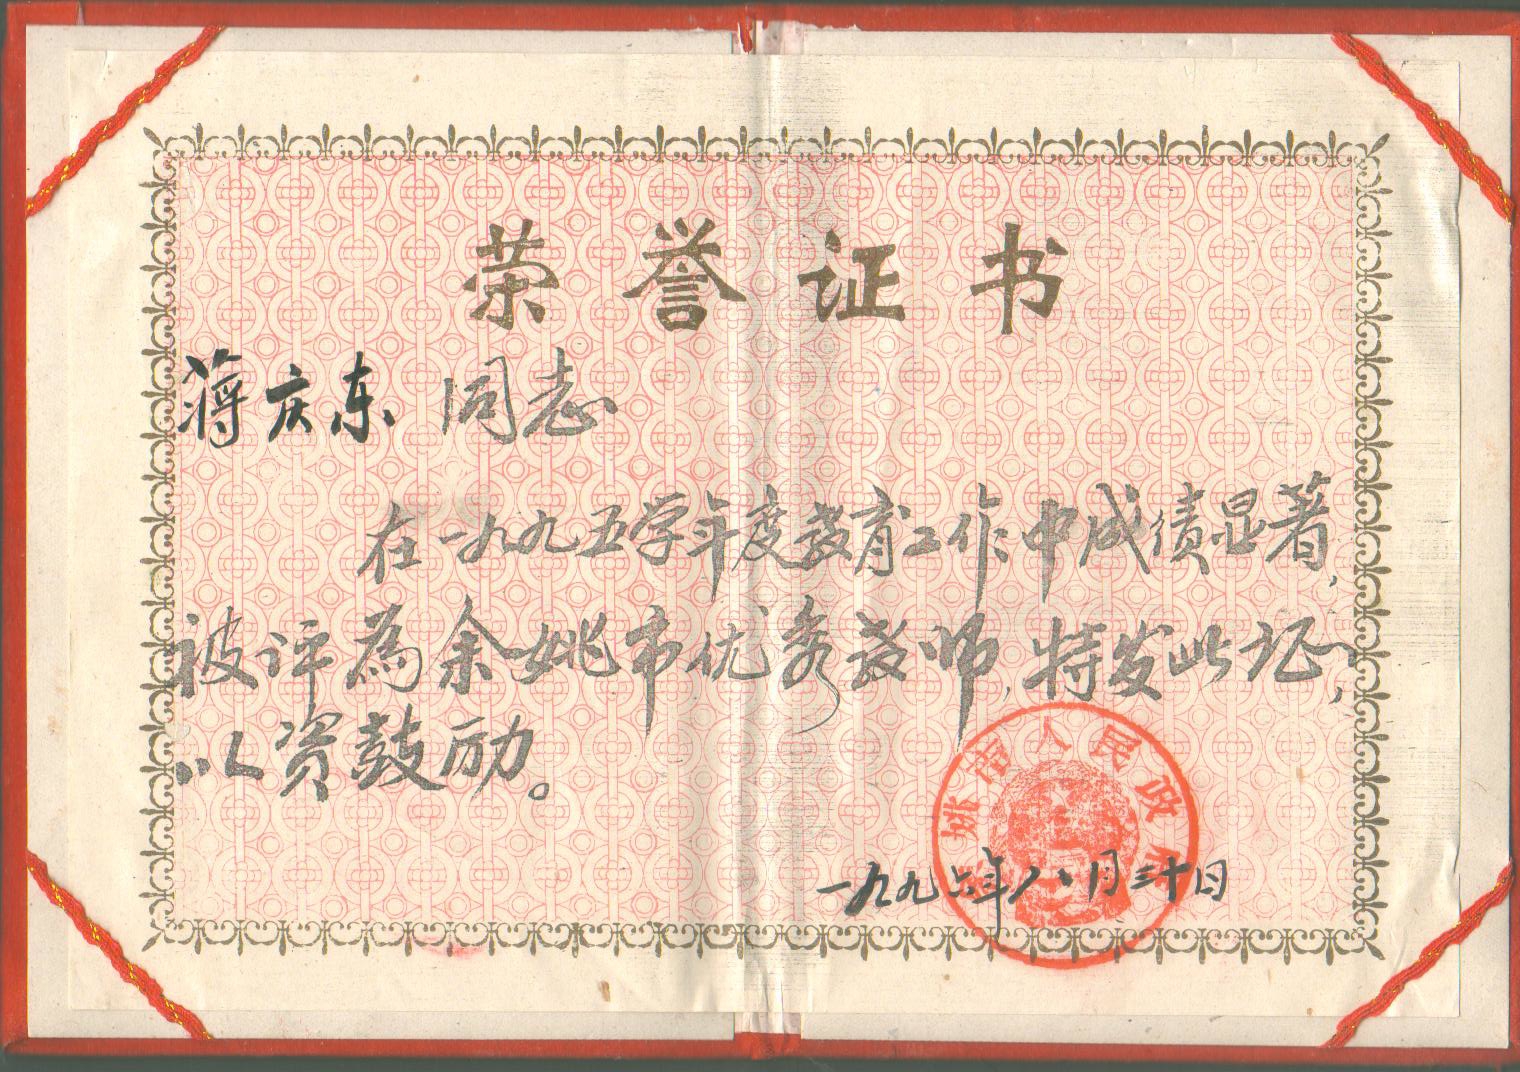 荣誉证书
蒋庆东 同志
在一九九五学年度教育工作中成绩显著,
被评為余姚市优秀教师,特发此证,
以资鼓励。
余姚市人民政府
一九九六年八月三十日